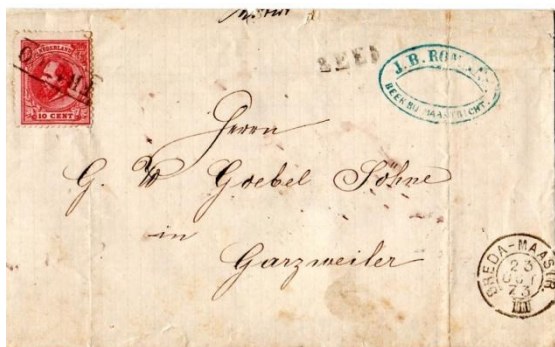 NEDERLAND
10 CENT
BEEK
J.B. RO
BEEK BIJ MAASTRICHT.
Herrn
G. Goebel Söhne
in
Garzweiler
BREDA-MAASTR.
23
OCT
73
III